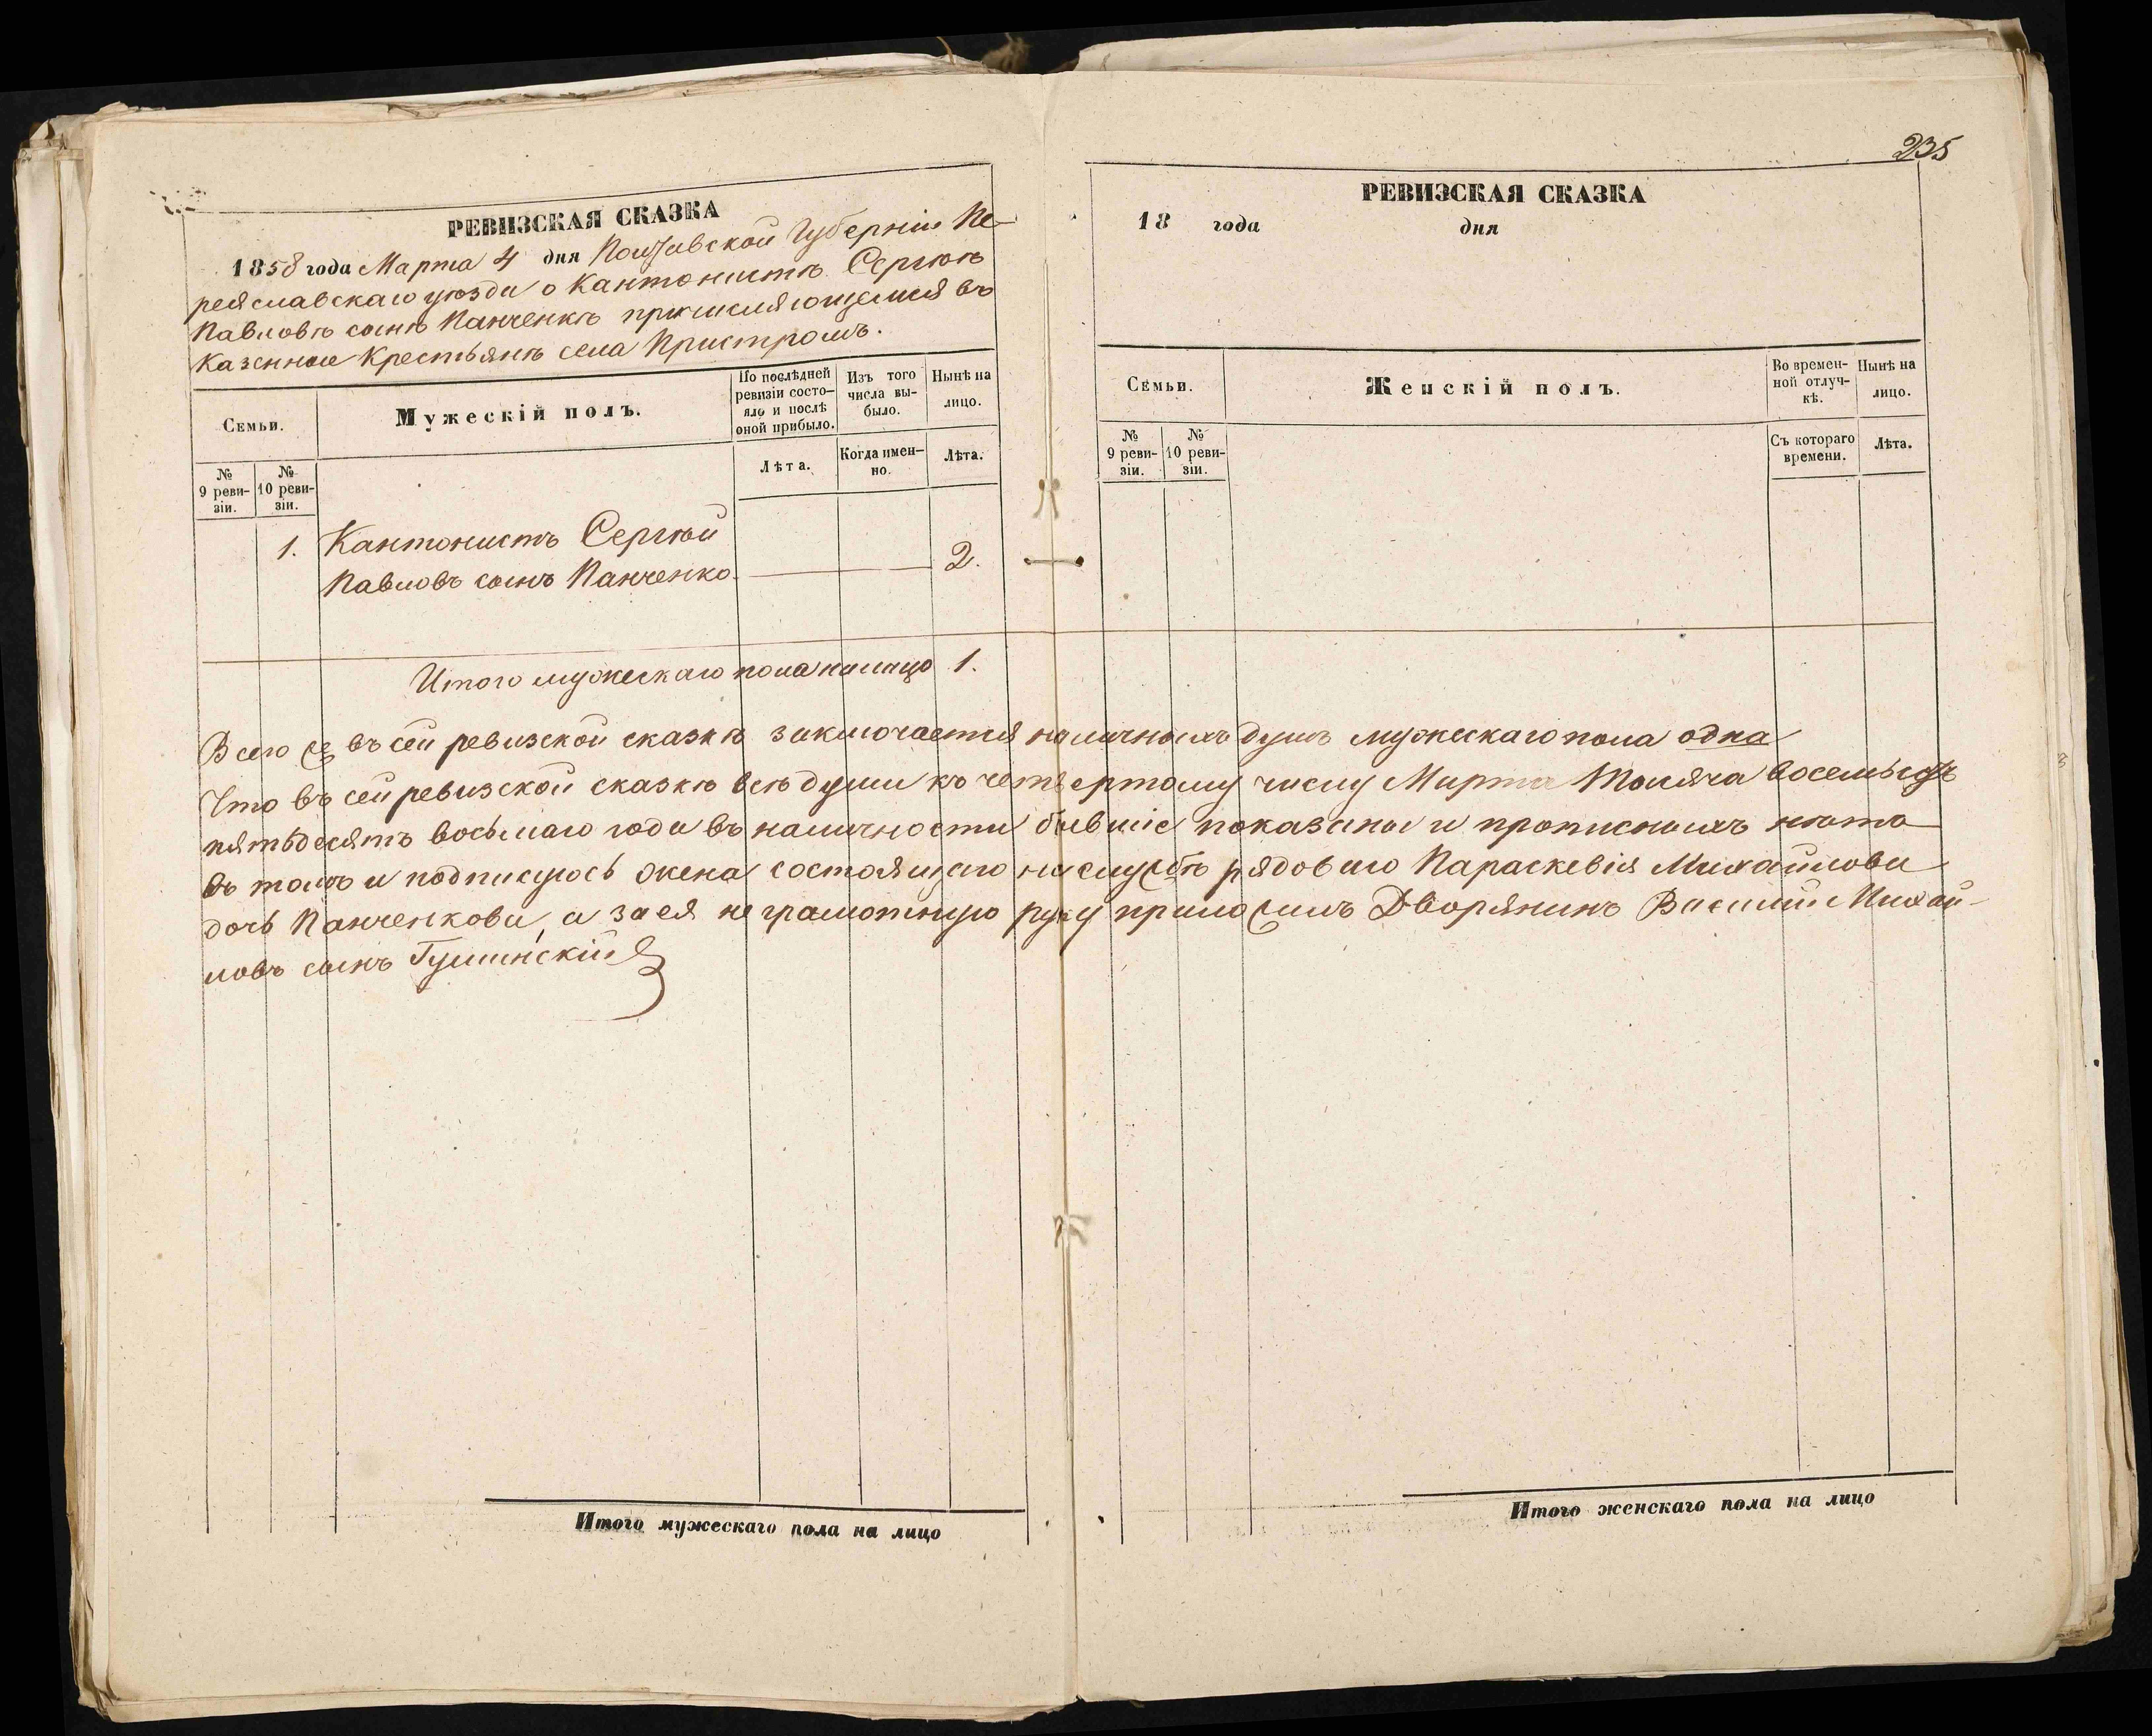 235
РЕВИЗСКАЯ СКАЗКА
1858 года Марта 4 дня Полтавской Губерніи Пе-
реяславскаго уѣзда о Кантонистѣ Сергѣѣ
Павловѣ сынѣ Панченкѣ причисляющемся въ
Казенные Крестьянѣ села Пристромъ.
Семьи.
Мужескій полъ.
По послѣдней
ревизіи состо-
яло и послѣ
оной прибыло.
Изъ того
числа вы-
было.
Нынѣ на
лицо.
№
9 реви-
зіи.
№
10 реви-
зіи.
Лѣта.
Когда имен-
но.
Лѣта.
1. Кантонистъ Сергѣй
Павловъ сынъ Панченко. 2.
Итого мужескаго пола налицо 1.
РЕВИЗСКАЯ СКАЗКА
18 года дня
Семьи.
Женскій полъ.
Во времен-
ной отлуч-
кѣ.
Нынѣ на
лицо.
№
9 реви-
зіи.
№
10 реви-
зіи.
Съ котораго
времени.
Лѣта.
Всего въ сей ревизской сказкѣ заключается наличныхъ душъ мужескаго пола одна
Что въ сей ревизской сказкѣ всѣ души къ четвертому числу Марта Тысяча восемьсотъ
пятьдесятъ восьмаго года въ наличности бывшіе показаны и прописныхъ нѣтъ
въ томъ и подписуюсь жена состоящаго на службѣ рядоваго Параскевія Михайлова
дочь Панченкова, а за ея неграмотную руку приложилъ Дворянинъ Василій Михай-
ловъ сынъ Гулинскій
Итого мужескаго пола на лицо
Итого женскаго пола на лицо